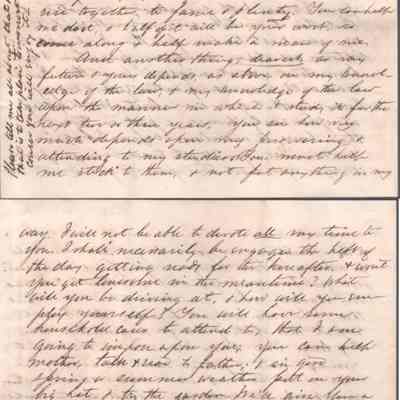 rise together to fame & plenty. You can help
me do it, & half of it will be your work, so
come along & help make a man of me.
And another thing, dearest, as my
future & yours depends, as above on my knowl-
edge of the law, & my knowledge of the law
upon the manner in which I study it for the
next two or three years, you see how very
much depends upon my persevering &
attending to my studies. You must help
me stick to them, & not put anything in my
Please tell me all about that
that is to take place
way. I will not be able to devote all my time to
you. I shall necessarily be engaged the heft of
the day getting ready for the hereafter, & won't
you get lonesome in the meantime? What
will you be driving at, & how will you em
ploy yourself? You will have some
household cares to attend to, that I am
going to impose upon you, you can help
mother, talk & read to father, & in good
spring or summer weather put on your
big hat & try the garden. We'll give you a